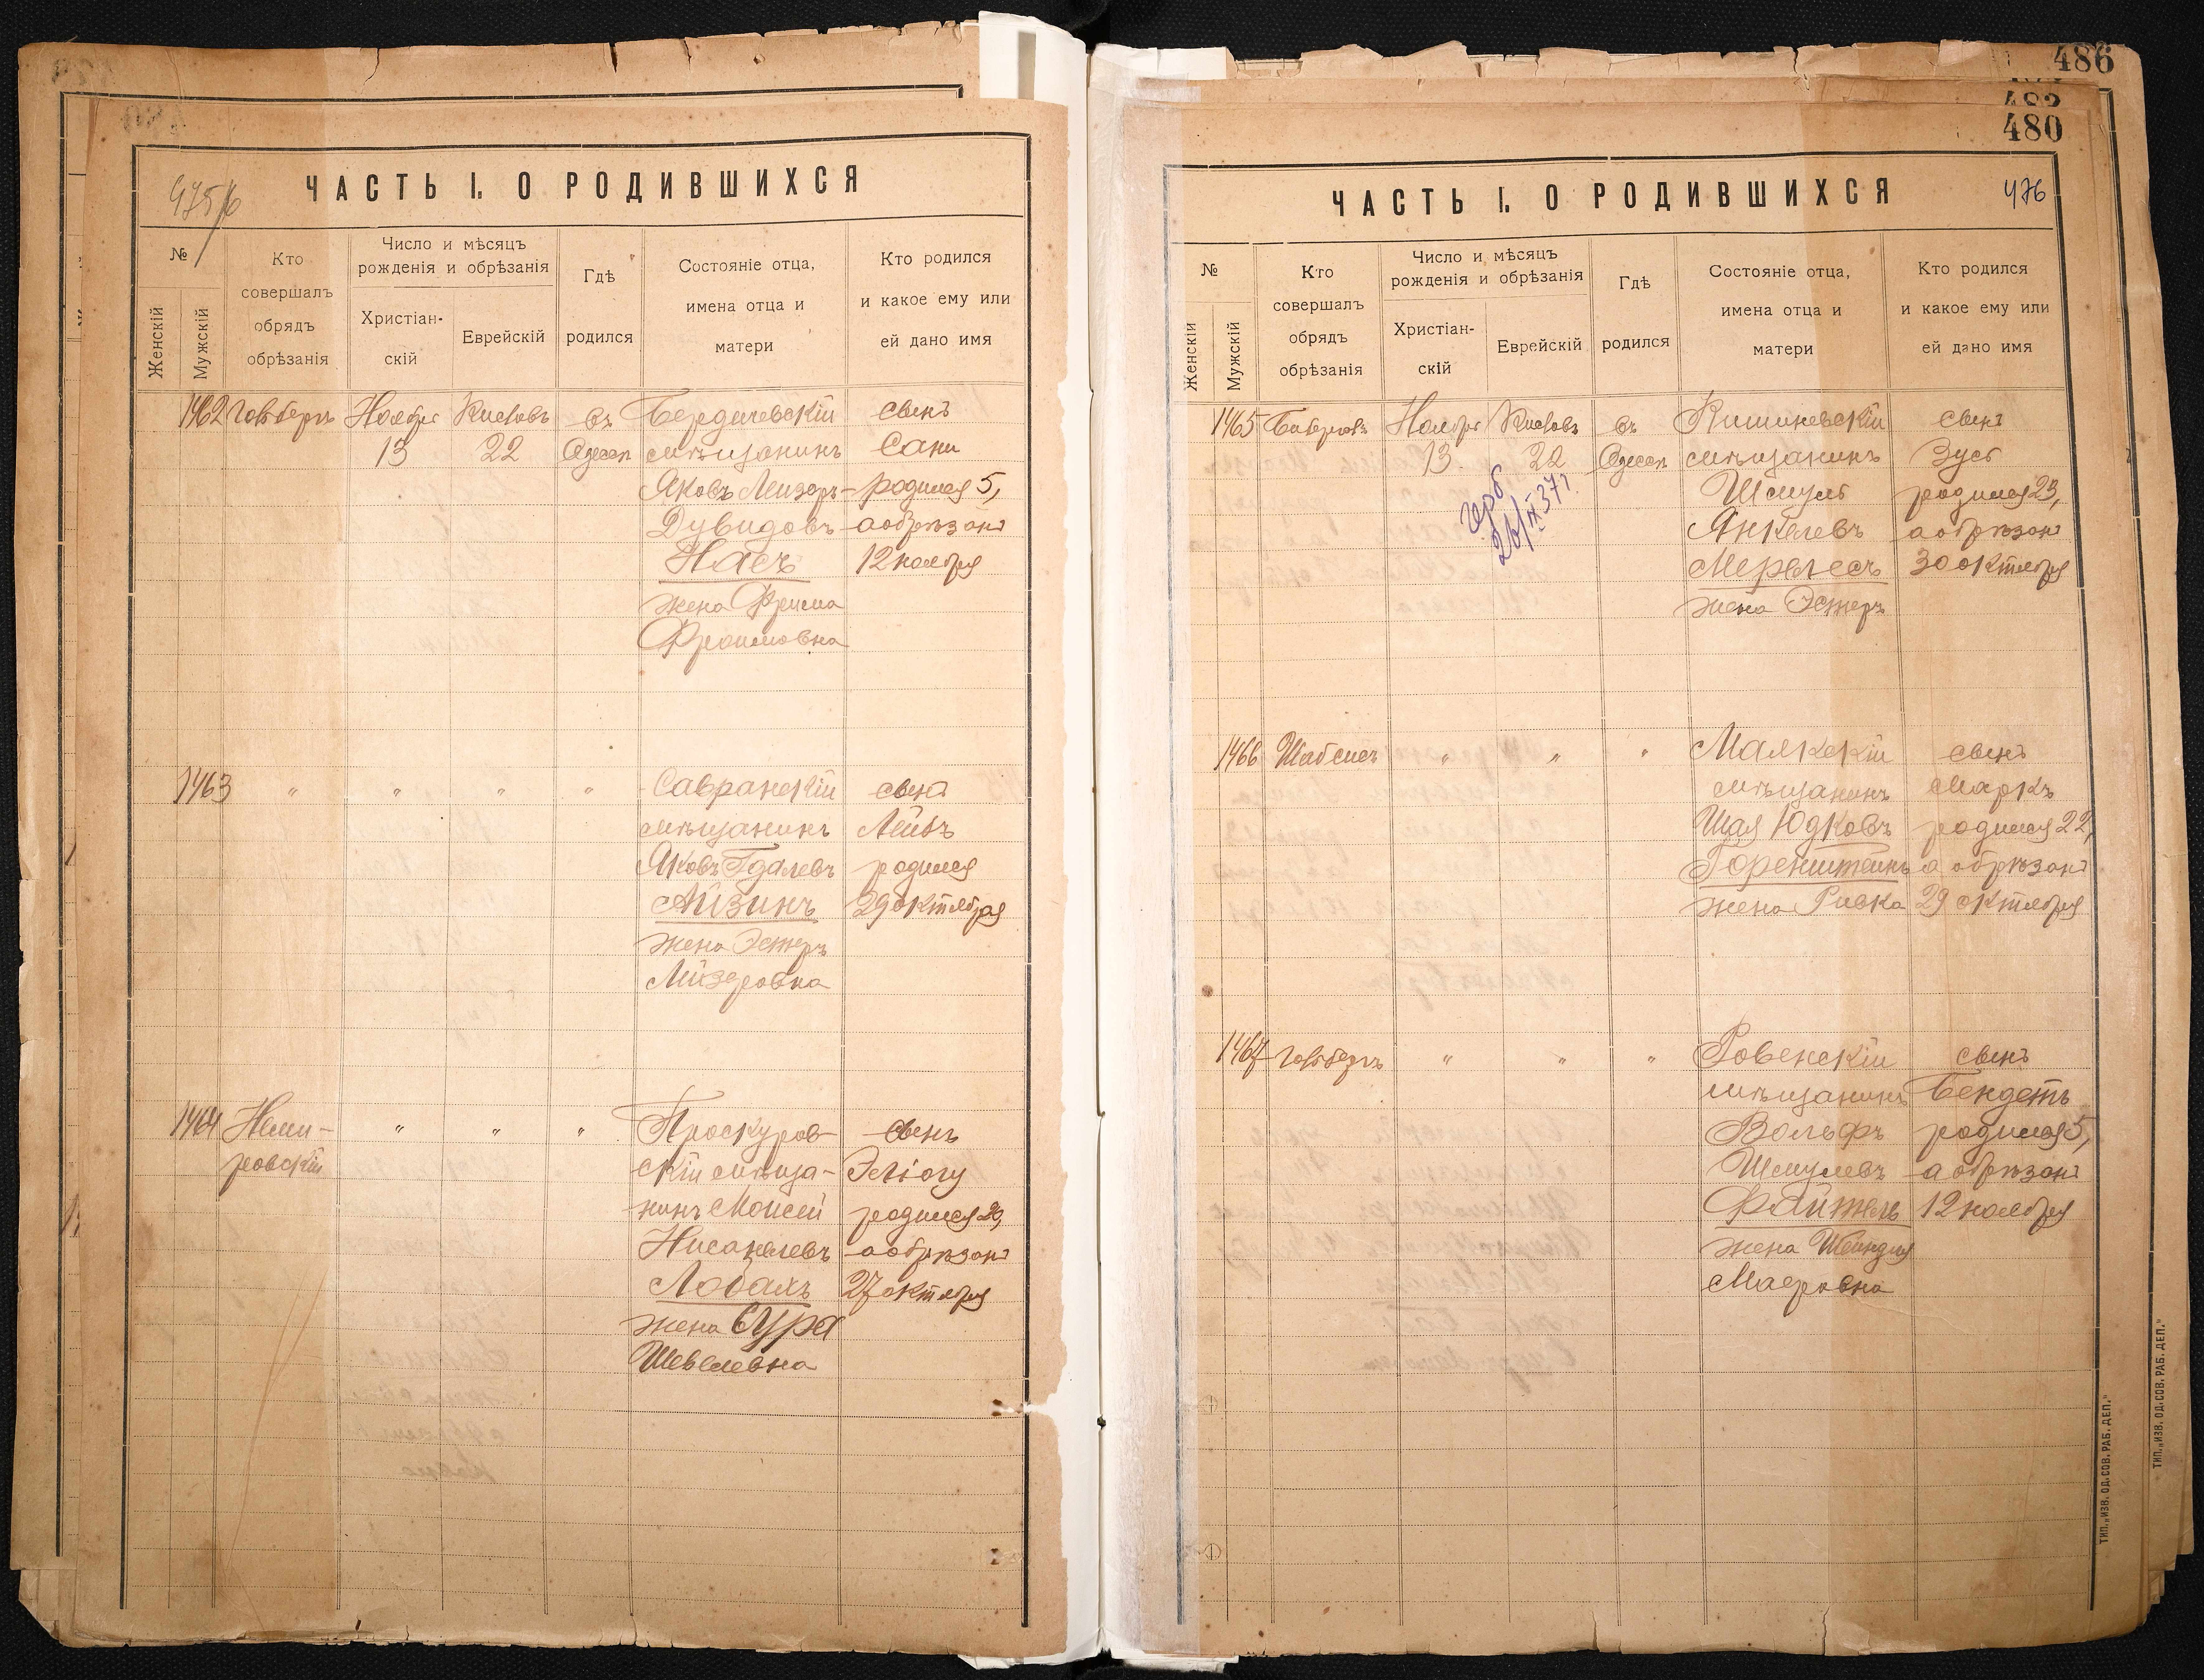 486
480
475/6
ЧАСТЬ I. О РОДИВШИХСЯ
№
Женскій
Мужскій
Кто
совершалъ
обрядъ
обрѣзанія
Число и мѣсяцъ
рожденія и обрѣзанія
Христіан-
скій
Еврейскій
Гдѣ
родился
Состояніе отца,
имена отца и
матери
Кто родился
и какое ему или
ей дано имя
1462 Ноября Кислевъ въ Бердичевскій сынъ
13 22 Одессѣ мѣщанинъ Сани
Яковъ Лейзеръ- родился 5,
Дувидовъ а обрѣзанъ
Насъ 12 ноября
жена Фрима
Фроимовна
1463 " " " " Савранскій сынъ
мѣщанинъ Лейбъ
Яковъ Гдалевъ родился
Айзинъ 29 октября
жена Эстеръ
Лейзеровна
1464 Неми- " " " Проскуров- сынъ
ровскій скій мѣща- Эліогу
нинъ Моисей родился 20,
а обрѣзанъ
27 октября
жена Сура
Шевелевна
476
ЧАСТЬ I. О РОДИВШИХСЯ
№
Женскій
Мужскій
Кто
совершалъ
обрядъ
обрѣзанія
Число и мѣсяцъ
рожденія и обрѣзанія
Христіан-
скій
Еврейскій
Гдѣ
родился
Состояніе отца,
имена отца и
матери
Кто родился
и какое ему или
ей дано имя
1465 Ноября Кислевъ въ Кишиневскій сынъ
13 22 Одессѣ мѣщанинъ Зусь
Шмуль родился 23,
Янкелевъ а обрѣзанъ
Мерлесъ 30 октября
жена Эстеръ
26/IX 37 г.
1466 Шабсисъ " " " Маякскій сынъ
мѣщанинъ Маркъ
Шая Юдковъ родился 22,
Горенштейнъ а обрѣзанъ
жена Ривка 29 октября
1467 " " " Ровенскій сынъ
мѣщанинъ Бендетъ
Вольфъ родился 5,
Шмулевъ а обрѣзанъ
Файтель 12 ноября
жена Шейндля
Маеровна
ТИП. „ИЗВ. ОД. СОВ. РАБ. ДЕП."
ТИП. „ИЗВ. ОД. СОВ. РАБ. ДЕП."